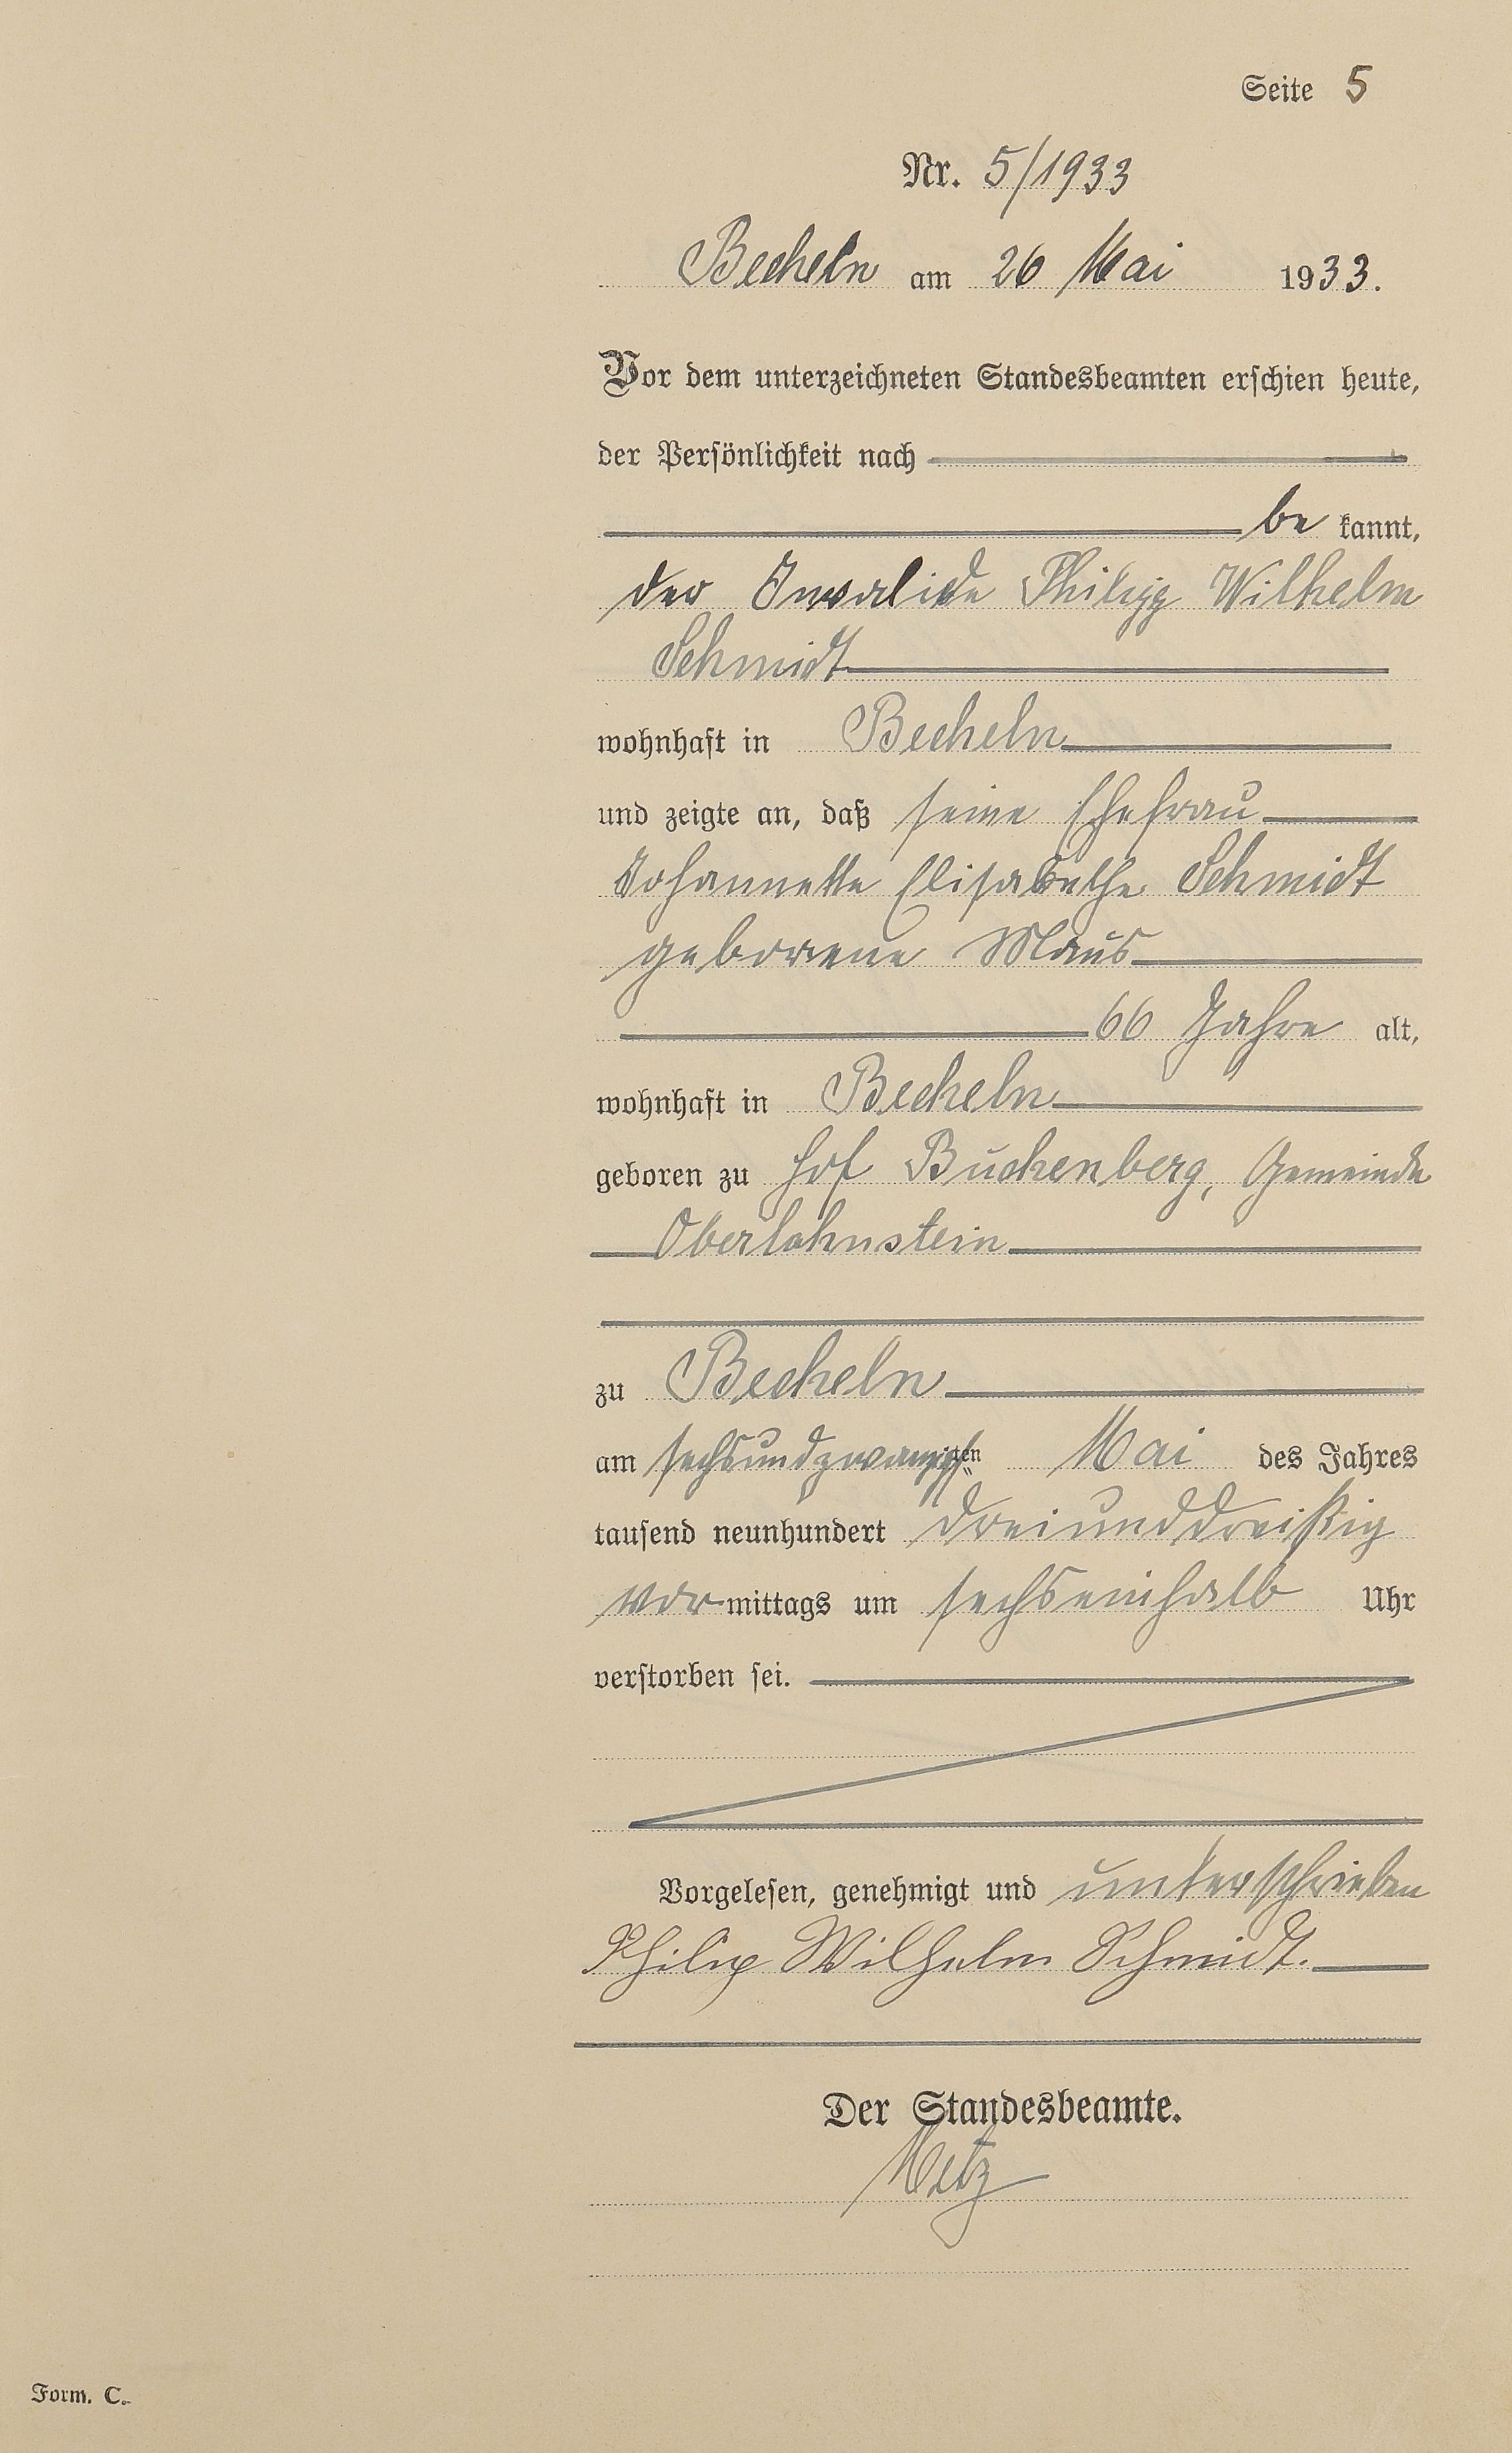 Seite 5
Nr. 5/1933
Becheln am 26 Mai 1933.
Vor dem unterzeichneten Standesbeamten erschien heute,
der Persönlichkeit nach
be kannt,
der Invalide Philipp Wilhelm
Schmidt
wohnhaft in Becheln
und zeigte an, daß seine Ehefrau
Johannette Elisabethe Schmidt
geborene Maus
66 Jahre alt,
wohnhaft in Becheln
geboren zu Hof Buchenberg, Gemeinde
Oberlahnstein
zu Becheln
am sechsundzwanzigsten Mai des Jahres
tausend neunhundert dreiunddreißig
vormittags um sechseinhalb Uhr
verstorben sei.
Vorgelesen, genehmigt und unterschrieben
Philip Wilhelm Schmidt.
Der Standesbeamte.
Metz
Form. C.